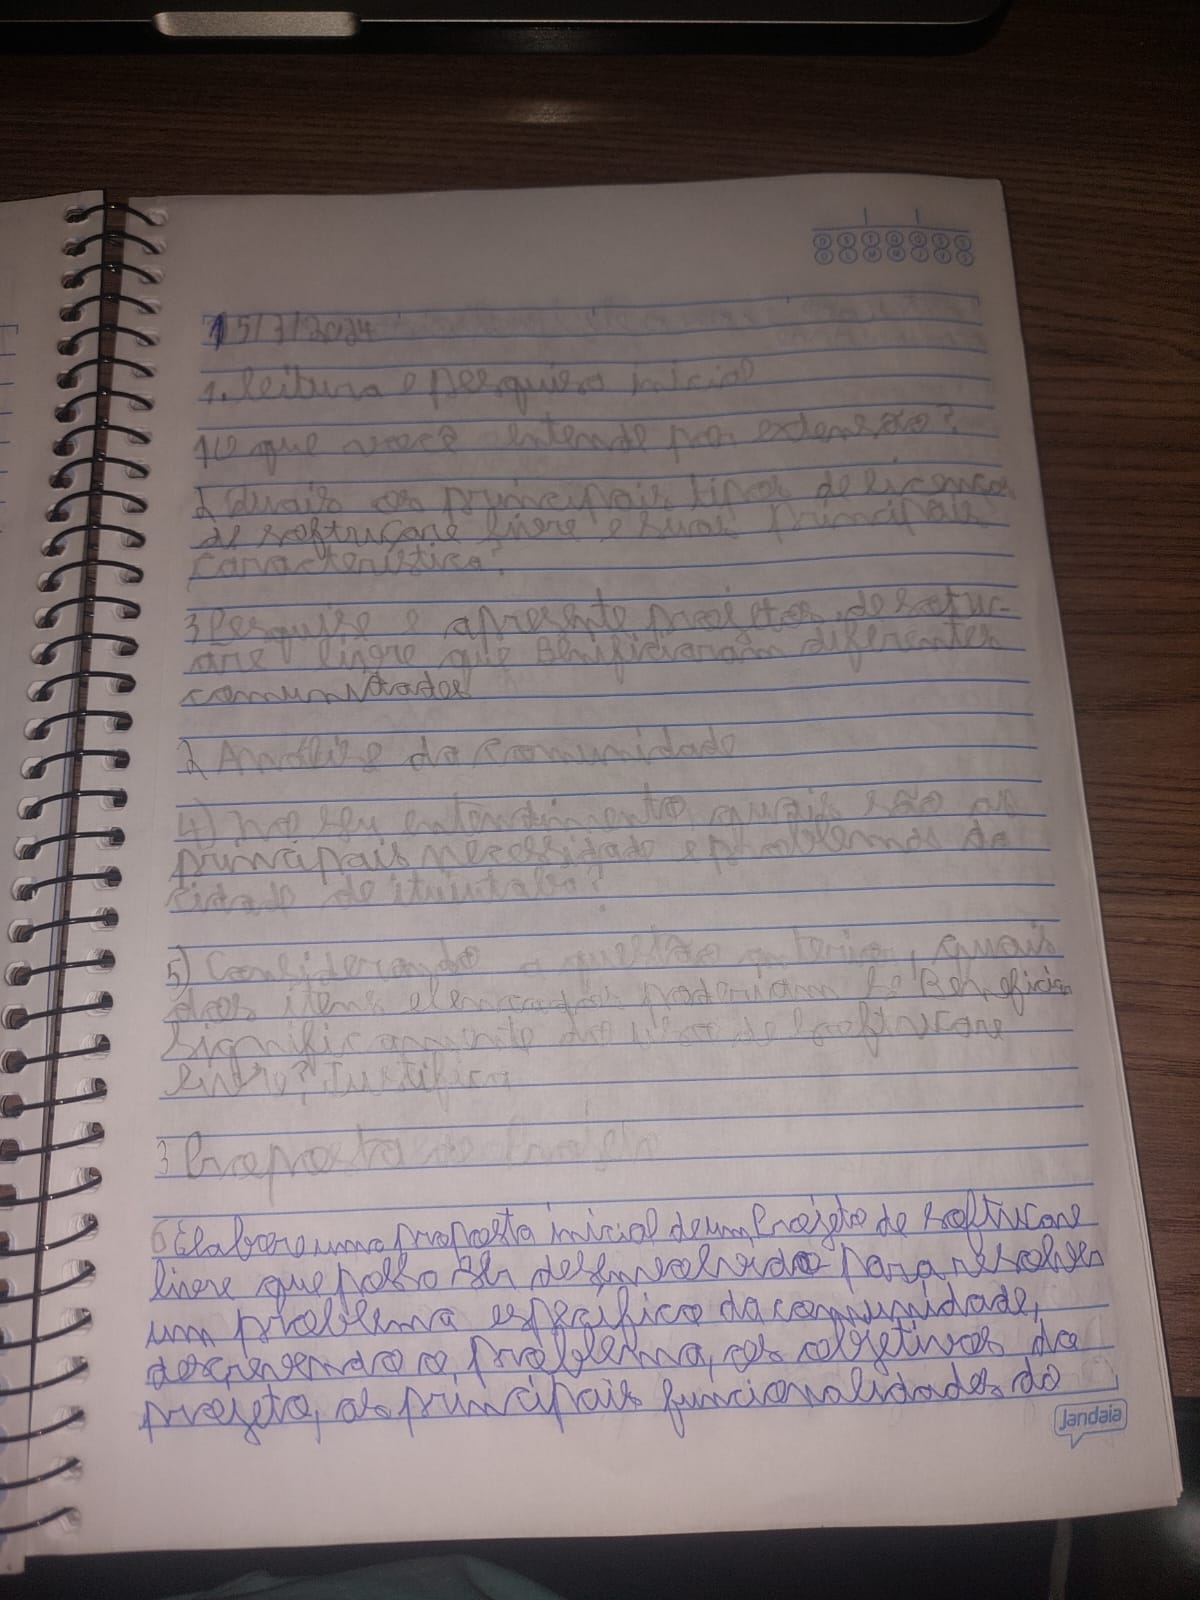 15/7/2024
1. leitura e pesquisa inicial
1) O que você entende por extensão?
2 Quais os principais tipos de licença
de softwcare livre e suas principais
característica?
3 Pesquise e apresente projetos de softwc-
are livre que Benificiaram diferentes
comunidades
2 Análise da comunidade
4) No seu entendimento, quais são as
principais necessidade e problemas da
cidade de ituiutaba?
5) Considerando a questão anterior, quais
dos itens elencados poderiam se Beneficiar
significamente do uso de softwcare
livre? Justifica
3 Proposta de Projeto
6 Elabore uma proposta inicial de um Projeto de softwcare
livre que possa ser desenvolvido para resolver
um problema específico da comunidade,
descrevendo o problema, os objetivos do
projeto, as principais funcionalidades do
Jandaia